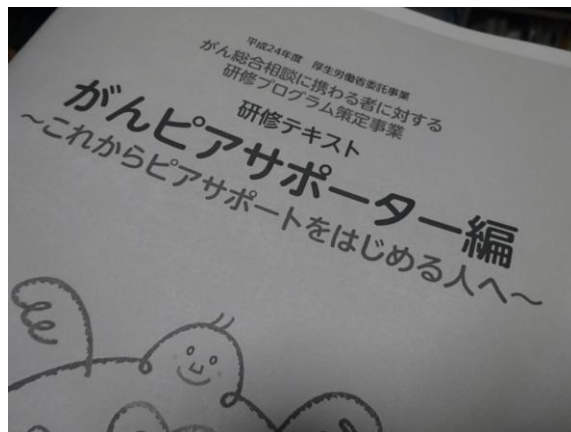 平成24年度 厚生労働省委託事業
がん総合相談に携わる者に対する
研修プログラム策定事業
研修テキスト
がんピアサポーター編
～これからピアサポートをはじめる人へ～